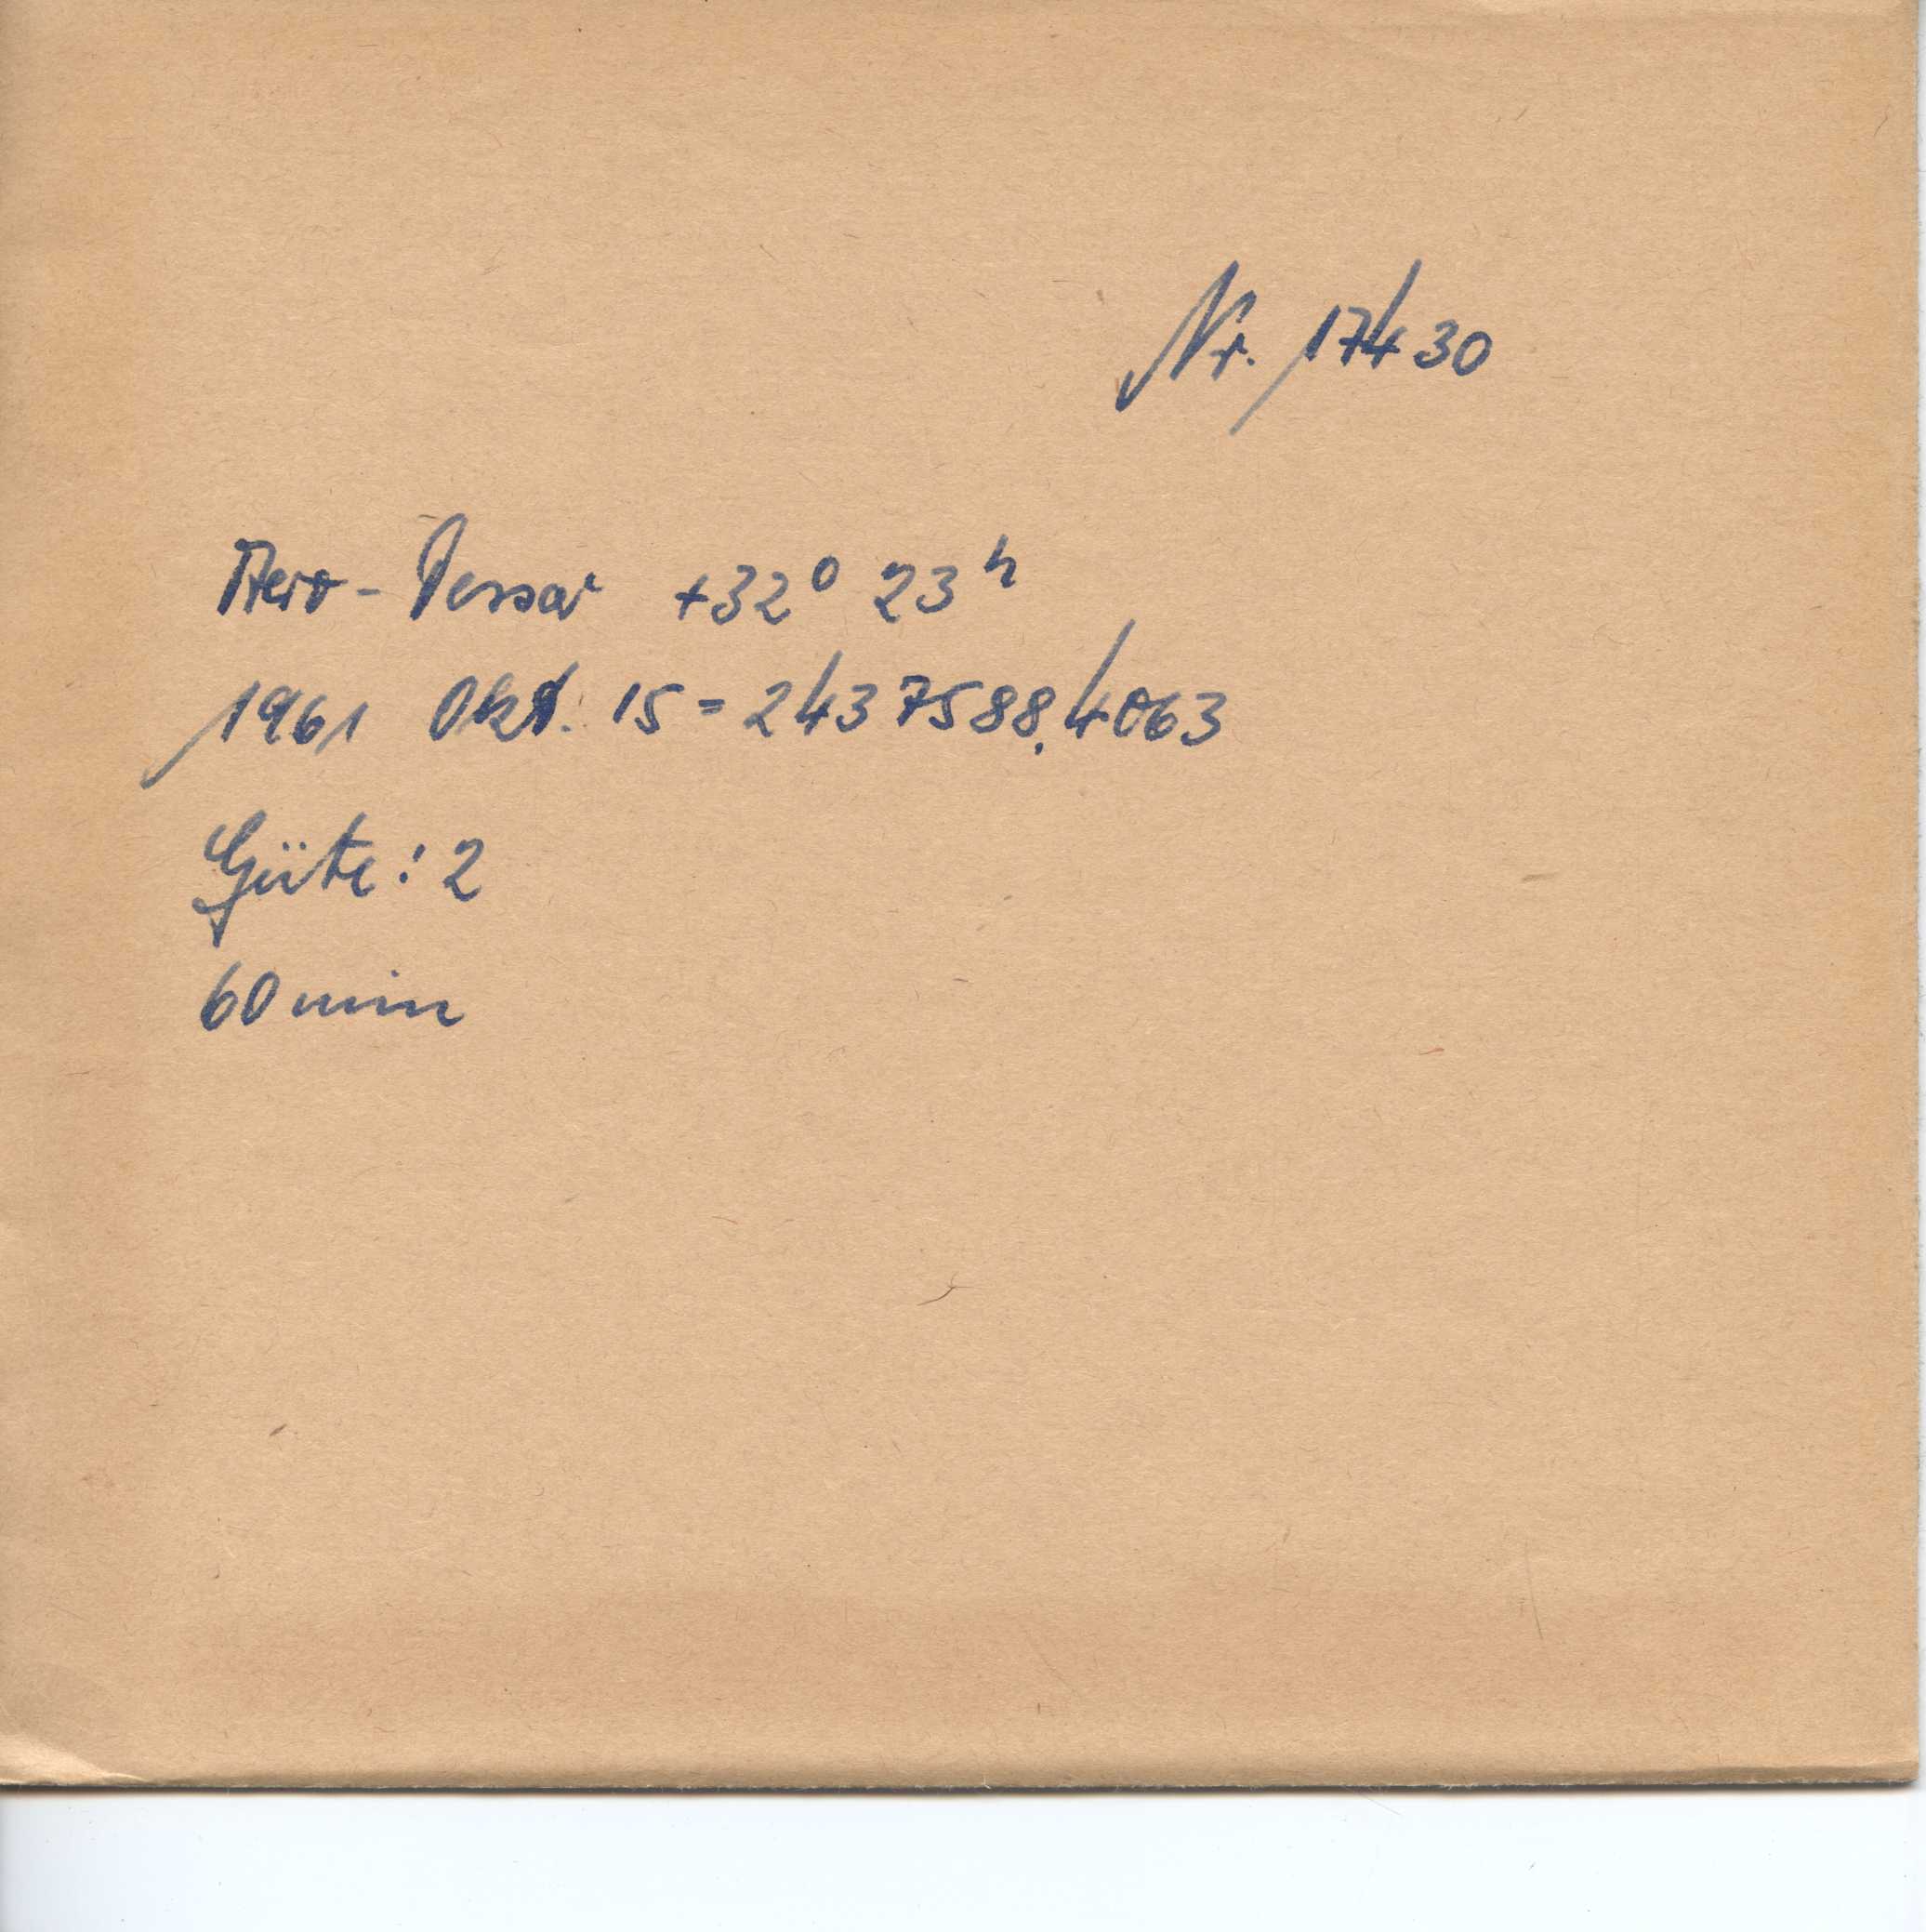 Nr. 17430
Aero-Tessar +32° 23ʰ
1961 Okt. 15 = 2437588.4063
Güte: 2
60 min